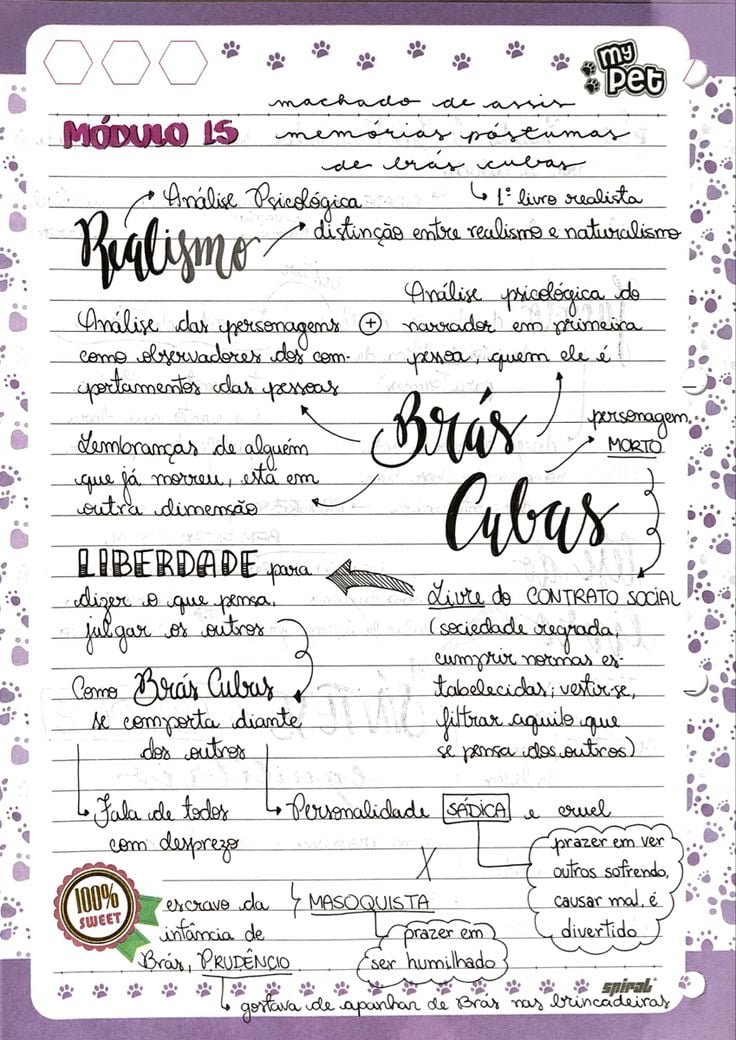 my pet
machado de assis
MÓDULO 15
memórias póstumas
de brás cubas
→ Análise Psicológica
↳ 1º livro realista
Realismo
→ distinção entre realismo e naturalismo
Análise das personagens
como observadores dos com-
portamentos das pessoas
+
Análise psicológica do
narrador em primeira
pessoa, quem ele é
Brás
Cubas
personagem
MORTO
Lembranças de alguém
que já morreu, está em
outra dimensão
LIBERDADE para
dizer o que pensa,
julgar os outros
Livre do CONTRATO SOCIAL
(sociedade regrada,
cumprir normas es-
tabelecidas; vestir-se,
filtrar aquilo que
se pensa dos outros)
Como Brás Cubas
se comporta diante
dos outros
↳ Fala de todos
com desprezo
↳ Personalidade SÁDICA e cruel
prazer em ver
outros sofrendo,
causar mal, é
divertido
X
100%
SWEET
escravo da
infância de
Brás, PRUDÊNCIO
MASOQUISTA
prazer em
ser humilhado
↳ gostava de apanhar de Brás nas brincadeiras
spiral